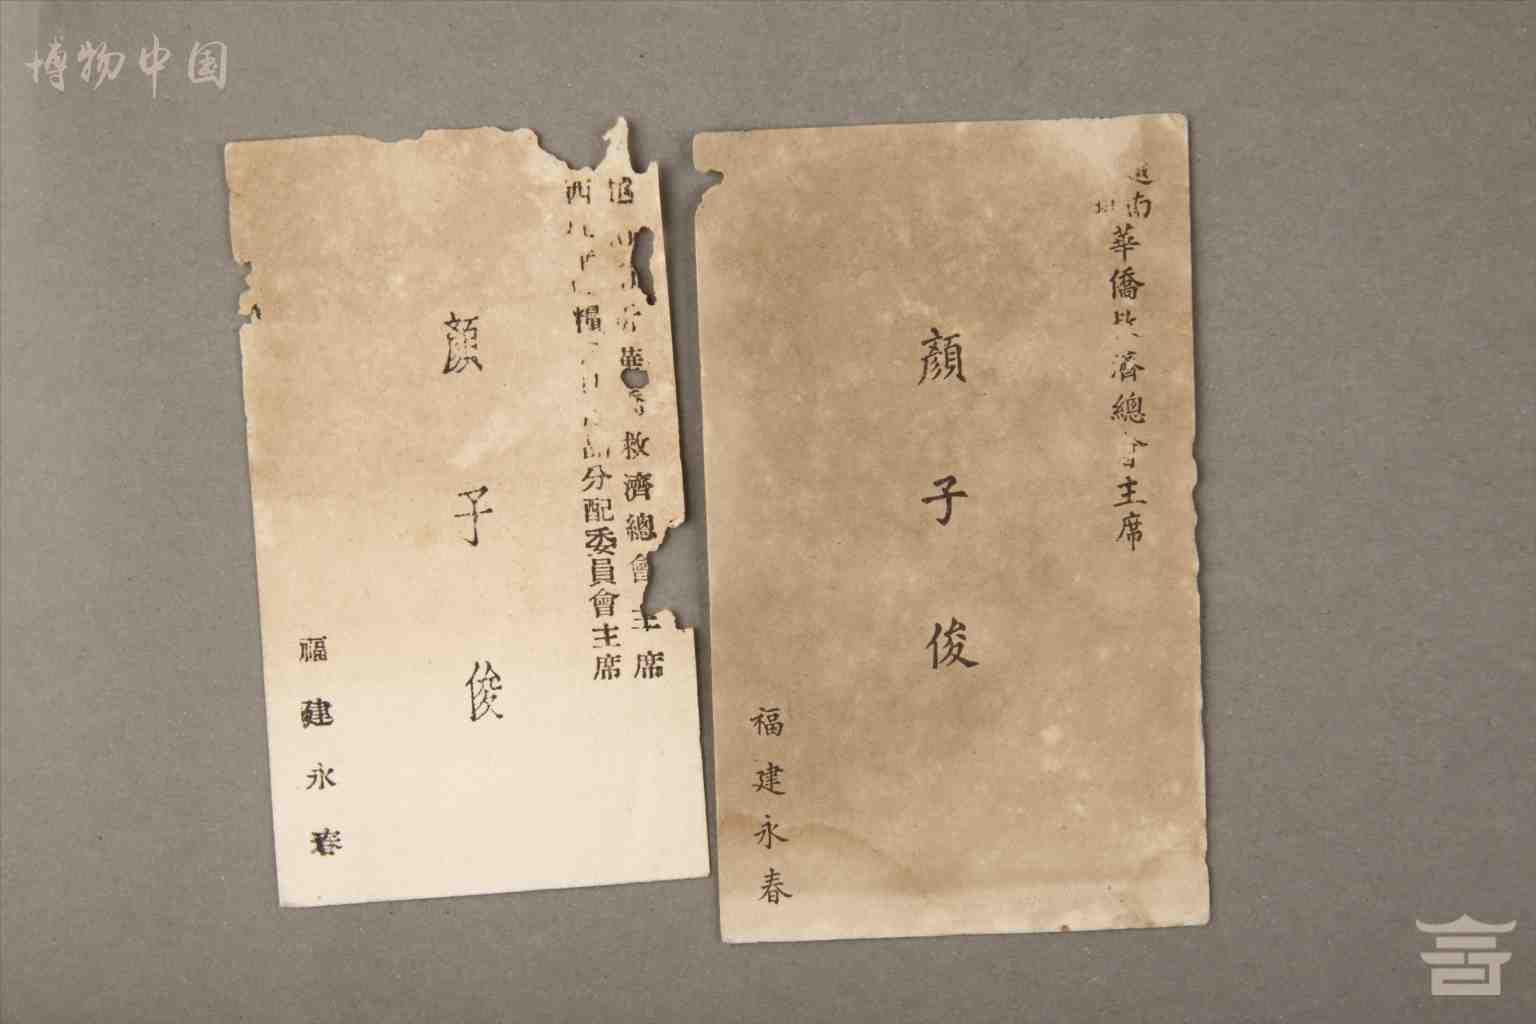 博物中国
華僑救濟總會主席
西
糧
分配委員會主席
顏子俊
福建永春
南
華僑
濟總會主席
顏子俊
福建永春